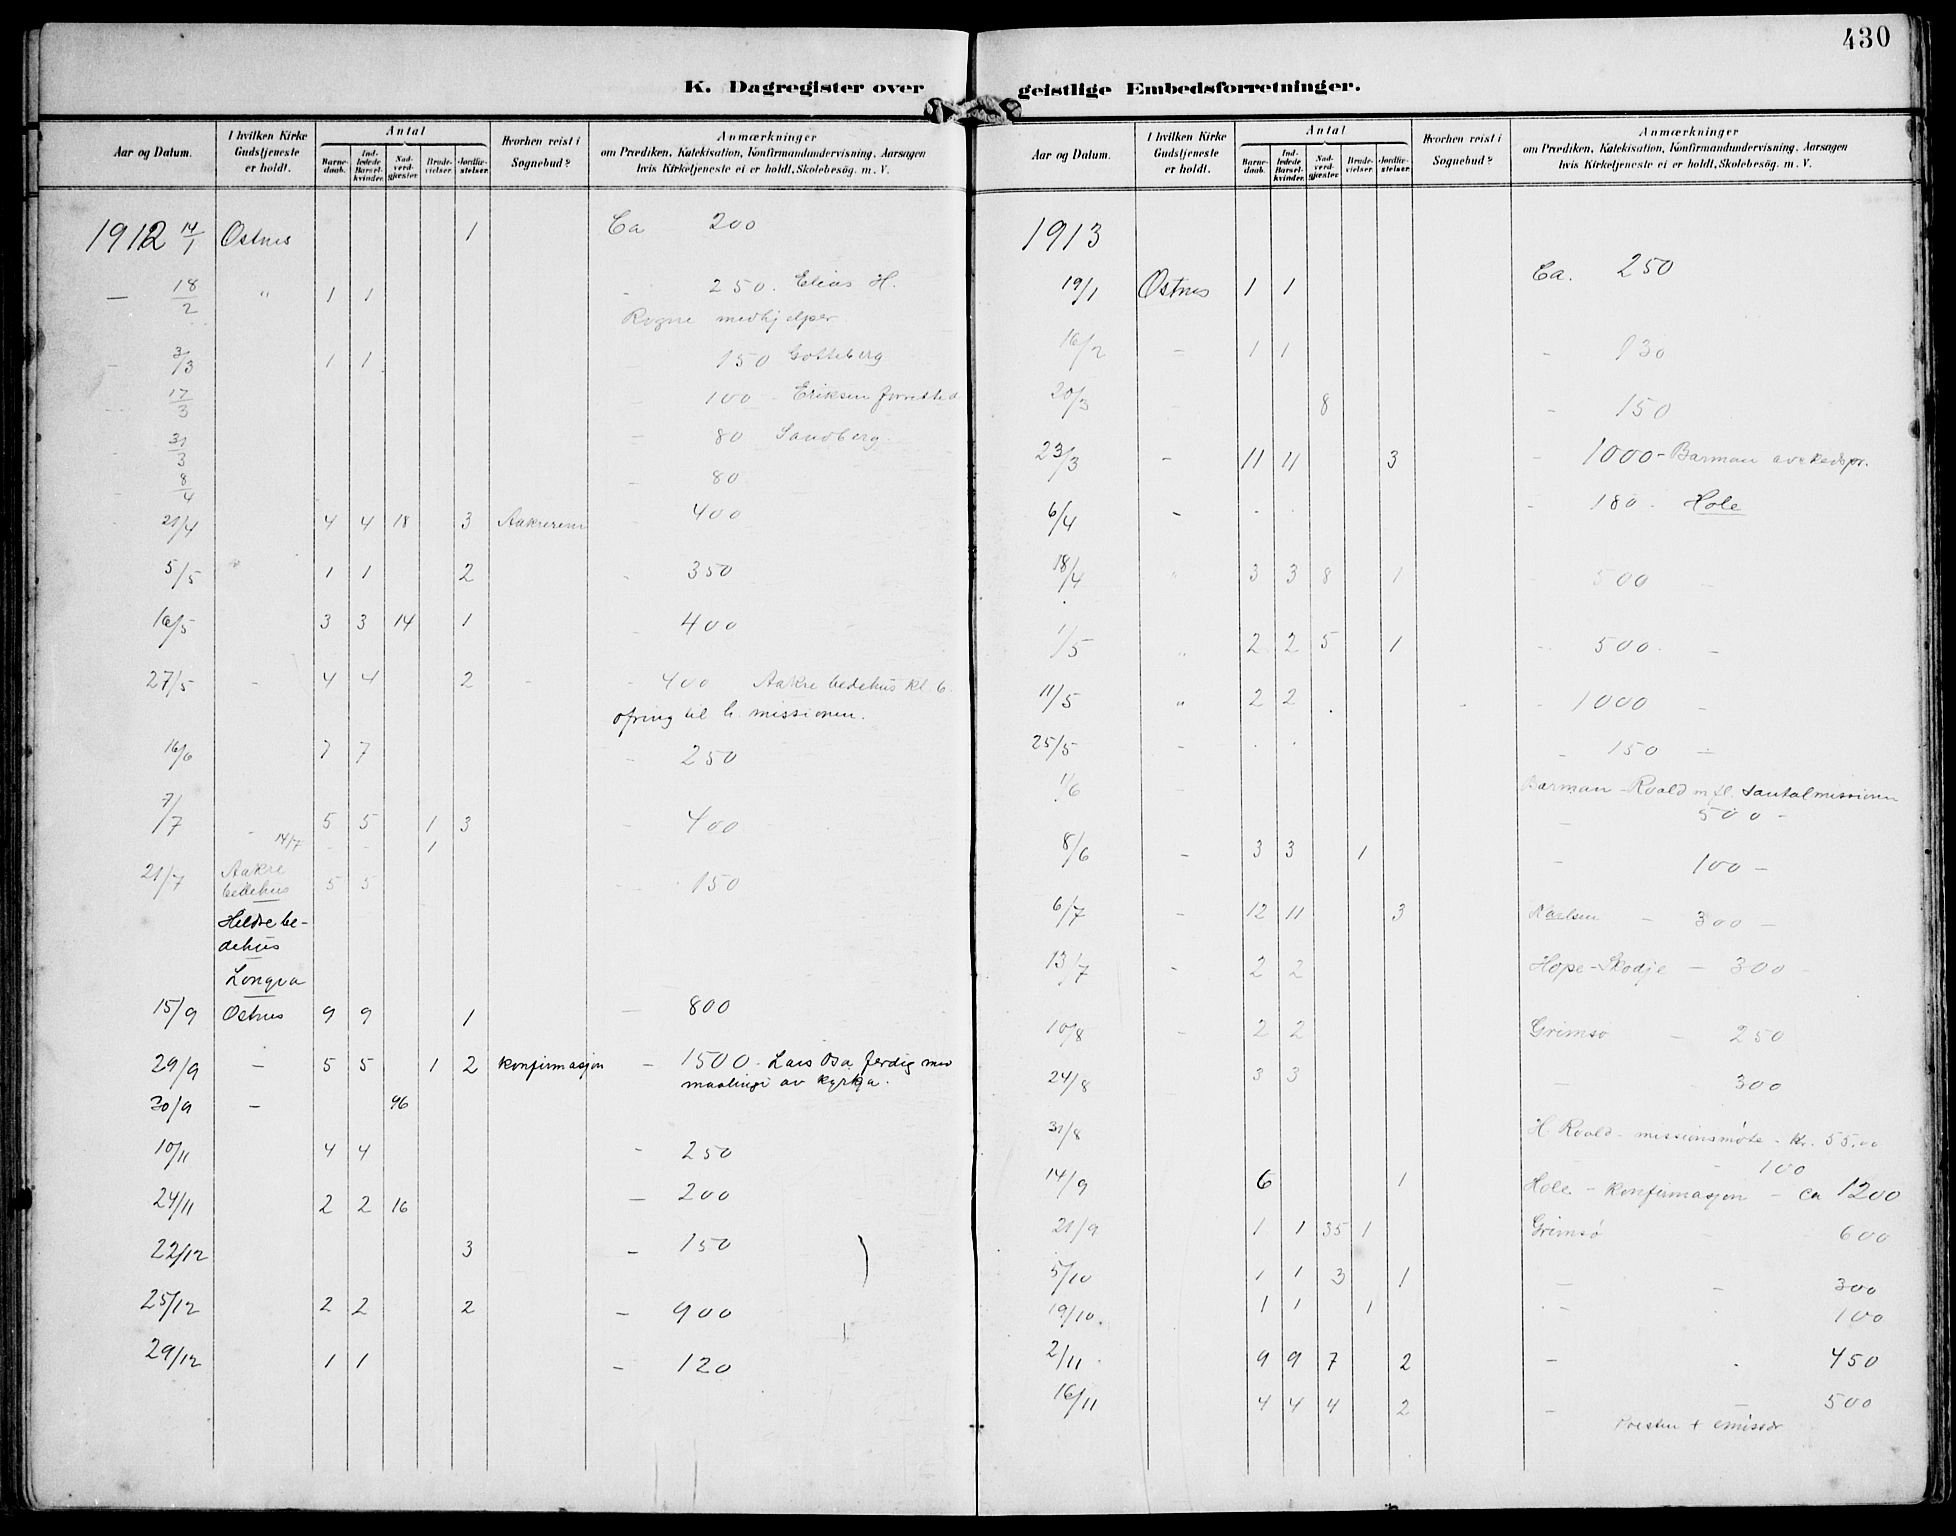 430
K. Dagregister over geistlige Embedsforretninger.
Aar og Datum. I hvilken Kirke Gudstjeneste er holdt. Antal Barnedaab. Indledede Barselkvinder. Nadverdgjæster. Brudevielser. Jordfæstelser. Hvorhen reist i Sognebud? Anmærkninger om Prædiken, Katekisation, Konfirmandundervisning, Aarsagen hvis Kirketjeneste ei er holdt, Skolebesøg. m. V.
1912 14/1 Østnes 1 Ca 200
— 18/2 " 1 1 - 250. Elias H.
Rogne medhjelper
- 3/3 1 1 150 Gotteberg
17/3 - 100 - Eriksen forretted
31/3 - 80 Sandberg
8/4 - 80
21/4 4 4 18 3 Aakrerem - 400
5/5 " 1 1 2 - 350
16/5 3 3 14 1 - 400
27/5 - 4 4 2 - - 400 Aakre bedehus kl. 6.
ofring til h. missionen.
16/6 7 7 - 250
7/7 - 5 5 1 3 - 400
14/7 - - 1
21/7 Aakre bedehus 5 5 - 150
Heldre be-
dehus
Longva
15/9 Østnes 9 9 1 — 800
29/9 - 5 5 1 2 konfirmasjon - 1500. Lars Osa ferdig med
maalingi av kyrkja.
30/9 - 96
10/11 4 4 - 250
24/11 2 2 16 — 200
22/12 3 - 150 )
25/12 2 2 2 - 900
29/12 1 1 - 120
Aar og Datum. I hvilken Kirke Gudstjeneste er holdt. Antal Barnedaab. Indledede Barselkvinder. Nadverdgjæster. Brudevielser. Jordfæstelser. Hvorhen reist i Sognebud? Anmærkninger om Prædiken, Katekisation, Konfirmandundervisning, Aarsagen hvis Kirketjeneste ei er holdt, Skolebesøg. m. V.
1913
19/1 Østnes 1 1 Ca. 250
16/2 - 1 1 - 130
20/3 - 8 - 150
23/3 - 11 11 3 - 1000 - Barman avskedspr.
6/4 - . . - 180. Hole
18/4 " 3 3 8 1 - 500 -
1/5 " 2 2 5 1 - 500. -
11/5 " 2 2 . - 1000 -
25/5 - . . - 150 -
1/6 - Barman - Roald m fl. Santalmissionen
- 500 -
8/6 - 3 3 1 - 100 -
6/7 - 12 11 3 - 300 -
13/7 - 2 2 Hope - Skodje - 300 -
10/8 - 2 2 Grimsø - 250
24/8 3 3 - 300
31/8 H. Roald - missionsmøte - kr. 55,00
- 100
14/9 6 1 Hole. - konfirmasjon - ca 1200
21/9 1 1 35 1 Grimsø - 600
5/10 1 1 3 1 - - 300
19/10. 1 1 1 - - 100
2/11. 9 9 7 2 - . 450
16/11 4 4 4 2 - - 500
Presten + emissær